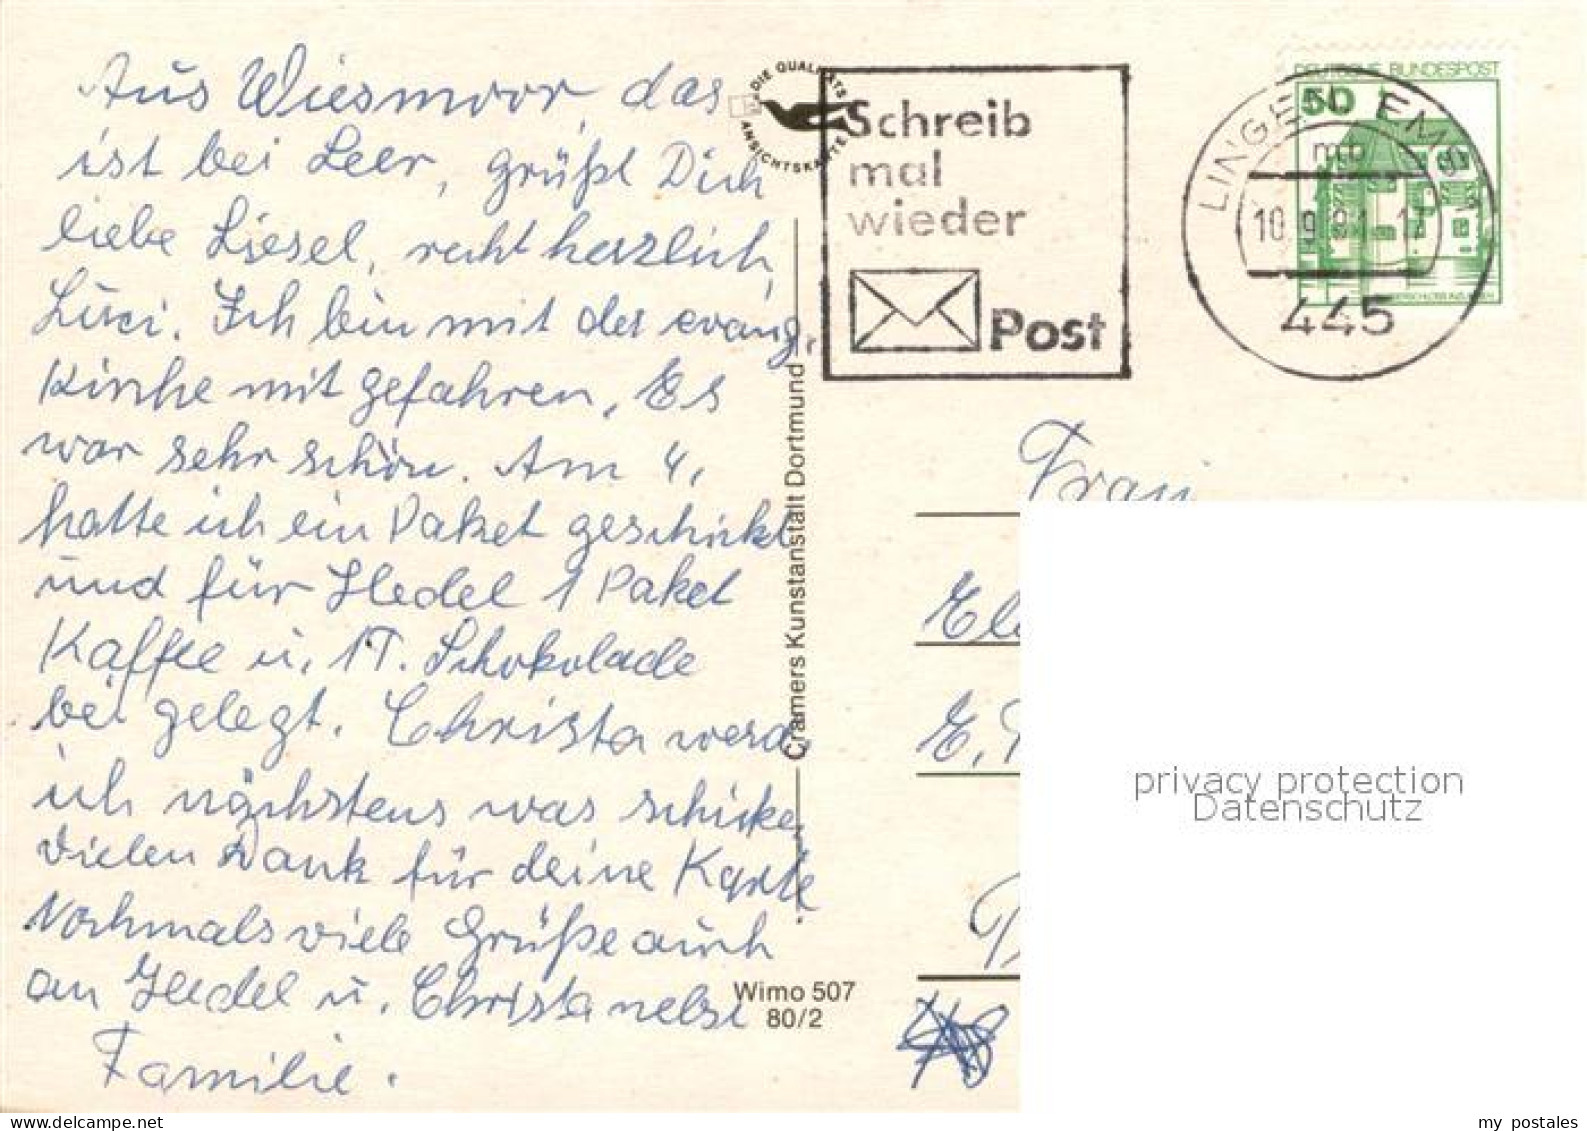 Aus Wiesmoor, das
ist bei Leer, grüßt Dich
liebe Liesel, recht herzlich
Luci. Ich bin mit der evang,
Kirche mit gefahren. Es
war sehr schön. Am 4,
hatte ich ein Paket geschickt
und für Hedel 1 Paket
Kaffee u. 1T. Schokolade
bei gelegt. Christa werd,
ich nächstens was schicke,
Vielen Dank für deine Karte
Nochmals viele Grüße auch
an Hedel u. Christa nebst
Familie.
DIE QUALITÄTS
ANSICHTSKARTE
Cramers Kunstanstalt Dortmund
Wimo 507
80/2
Schreib
mal
wieder
Post
LINGEN, EMS
mb
10.9.81-17
445
DEUTSCHE BUNDESPOST
50
Frau
privacy protection
Datenschutz
my postales